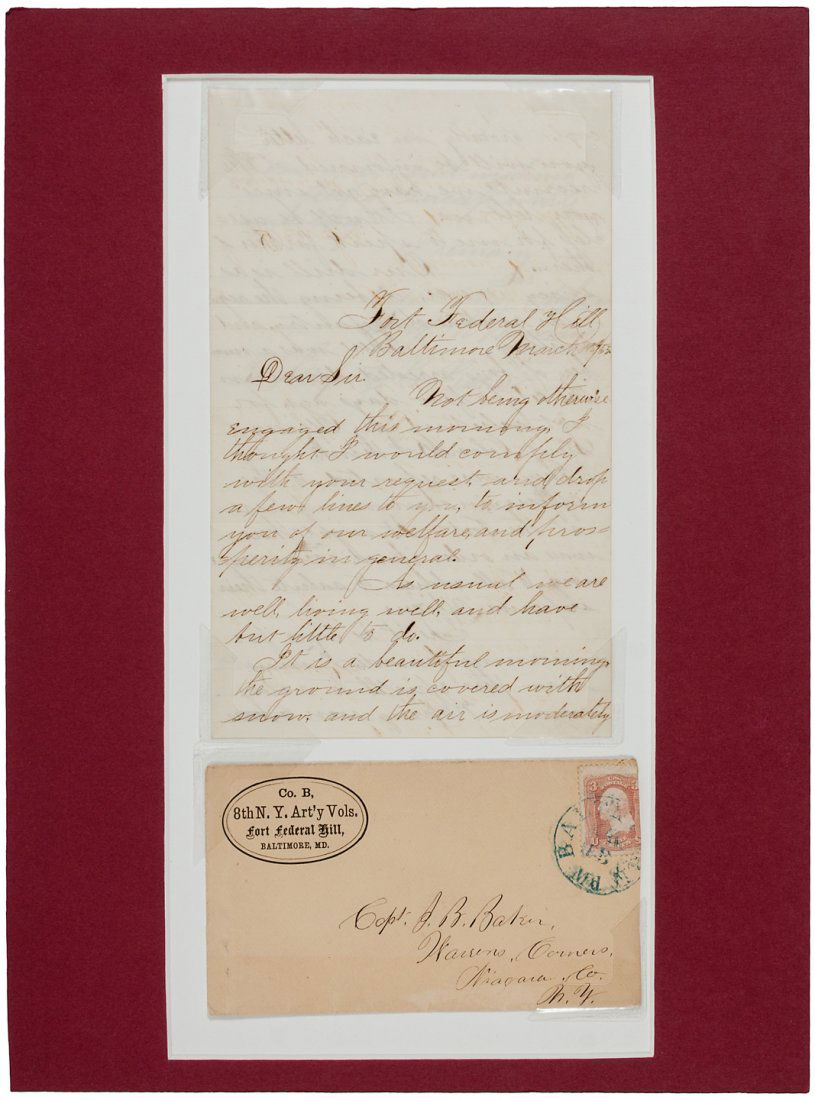 Fort Federal Hill
Baltimore March
Dear Sir.
Not being otherwise
engaged this morning I
thought I would comply
with your request, and drop
a few lines to you, to inform
you of our welfare, and pros=
perity in general.
As usual we are
well, living well, and have
but little to do.
It is a beautiful morning,
the ground is covered with
snow, and the air is moderately
Co. B,
8th N. Y. Art'y Vols.
Fort Federal Hill,
BALTIMORE, MD.
3
BAL
Capt. J. B. Baker,
Warrens, Corners,
Niagara Co.
N. Y.